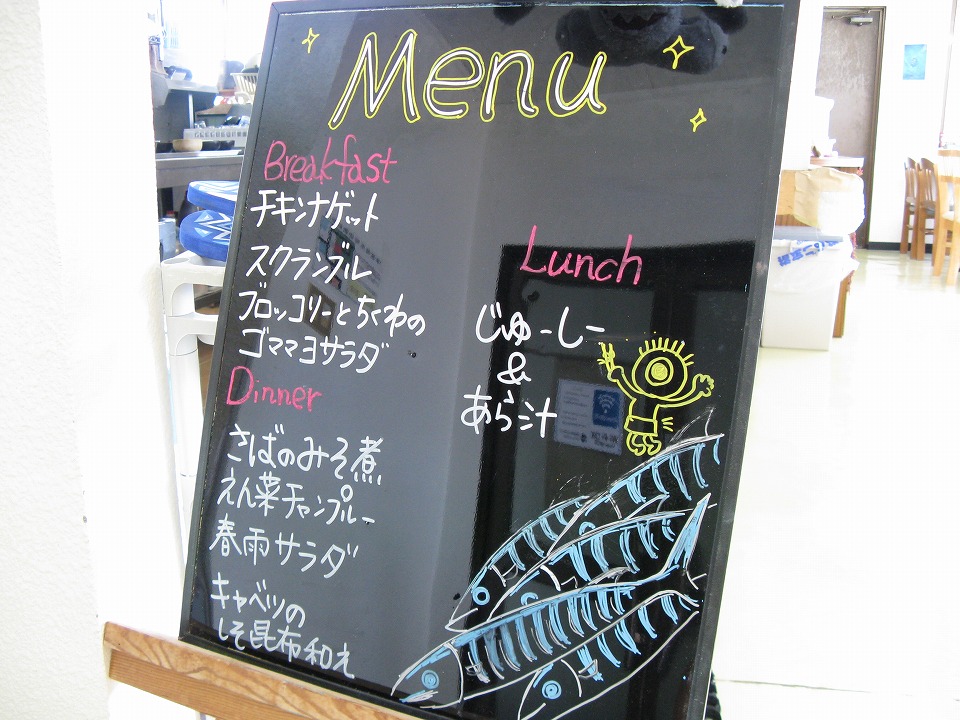 Menu
Breakfast
チキンナゲット
スクランブル
ブロッコリーとちくわの
ゴママヨサラダ
Lunch
じゅーしー
&
あら汁
Dinner
さばのみそ煮
えん菜チャンプルー
春雨サラダ
キャベツの
しそ昆布和え